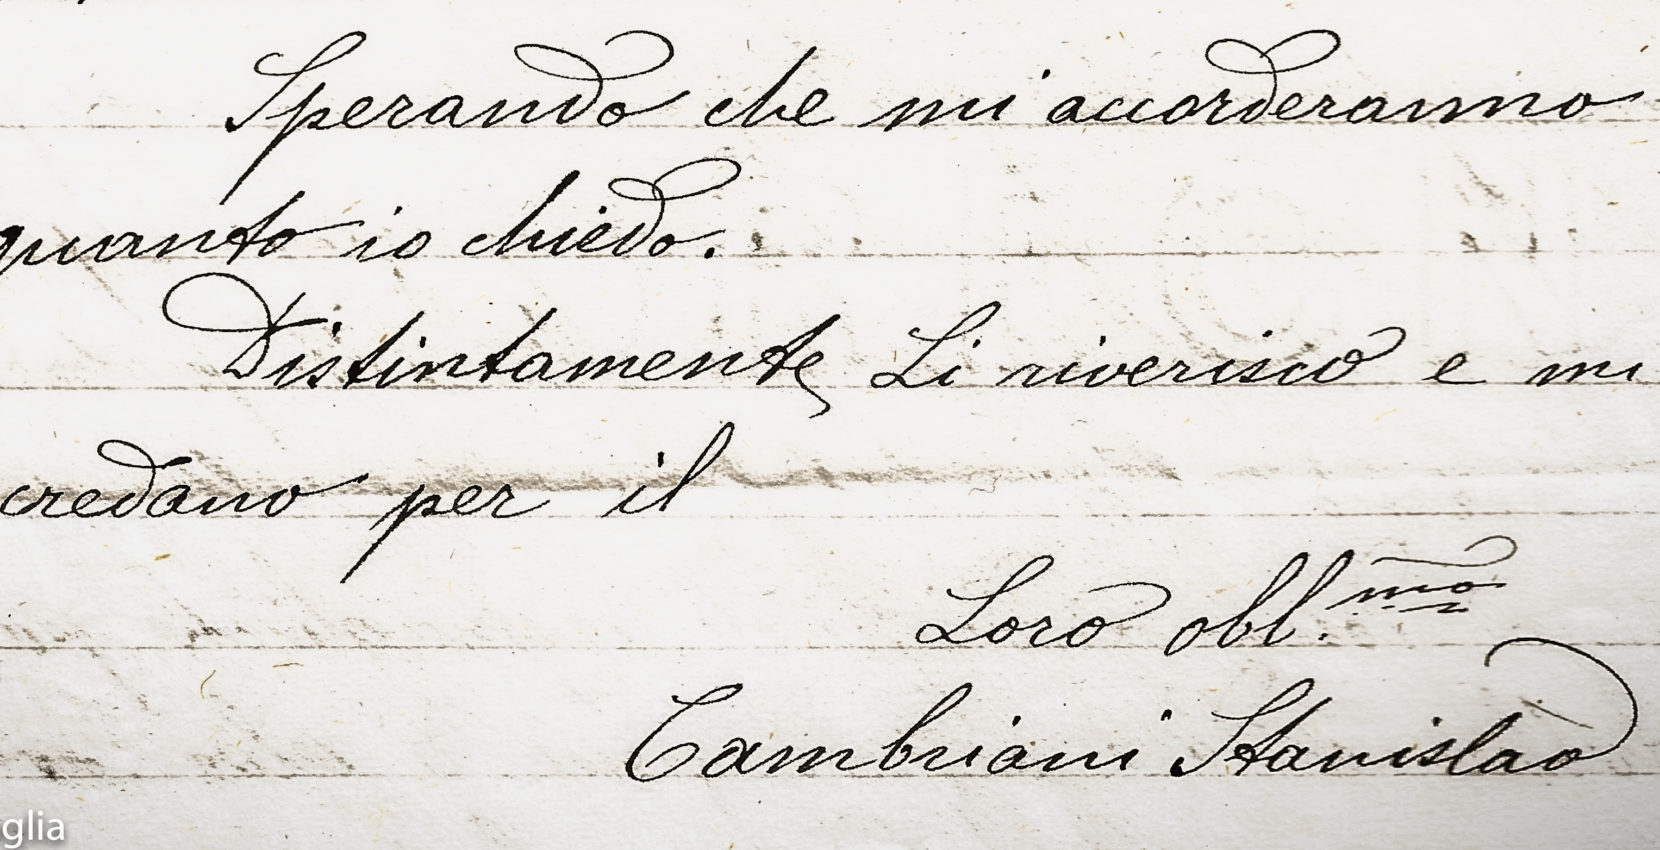 Sperando che mi accorderanno
quanto io chiedo.
Distintamente Li riverisco e mi
credano per il
Loro obl.mo
Cambriani Stanislao
glia